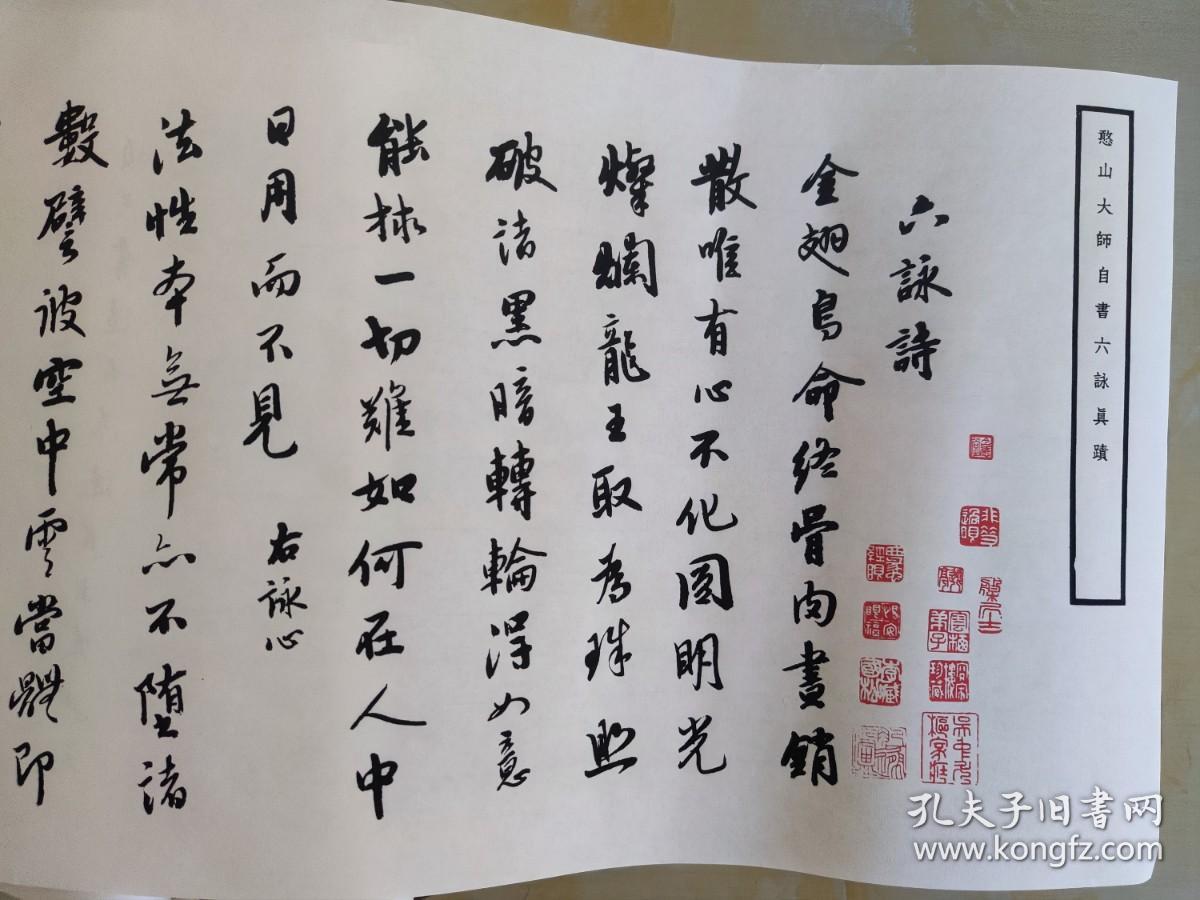 憨山大師自書六詠真蹟
六詠詩
金翅鳥命終骨肉盡銷
散唯有心不化圓明光
燦爛龍王取為珠照
破諸黑暗轉輪得如意
能捄一切難如何在人中
日用而不見 右詠心
法性本無常亦不墮諸
數譬彼空中雲當體即
孔夫子旧书网
www.kongfz.com